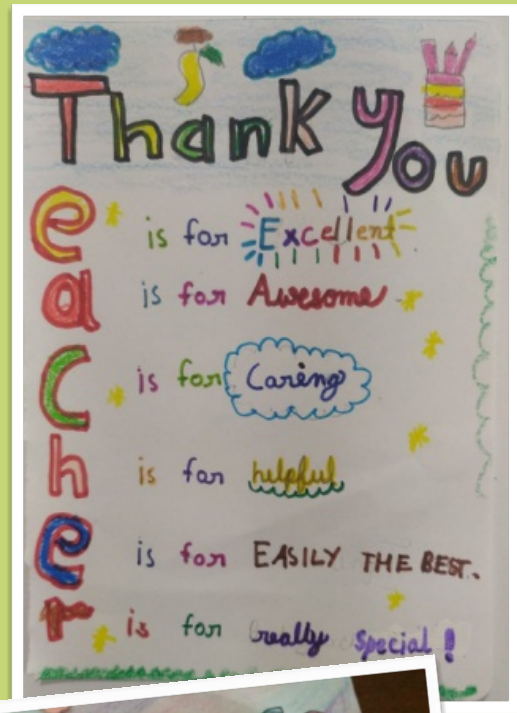 Thank you
e is for Excellent
a is for Awesome
c is for Caring
h is for helpful
e is for EASILY THE BEST.
r is for really special !